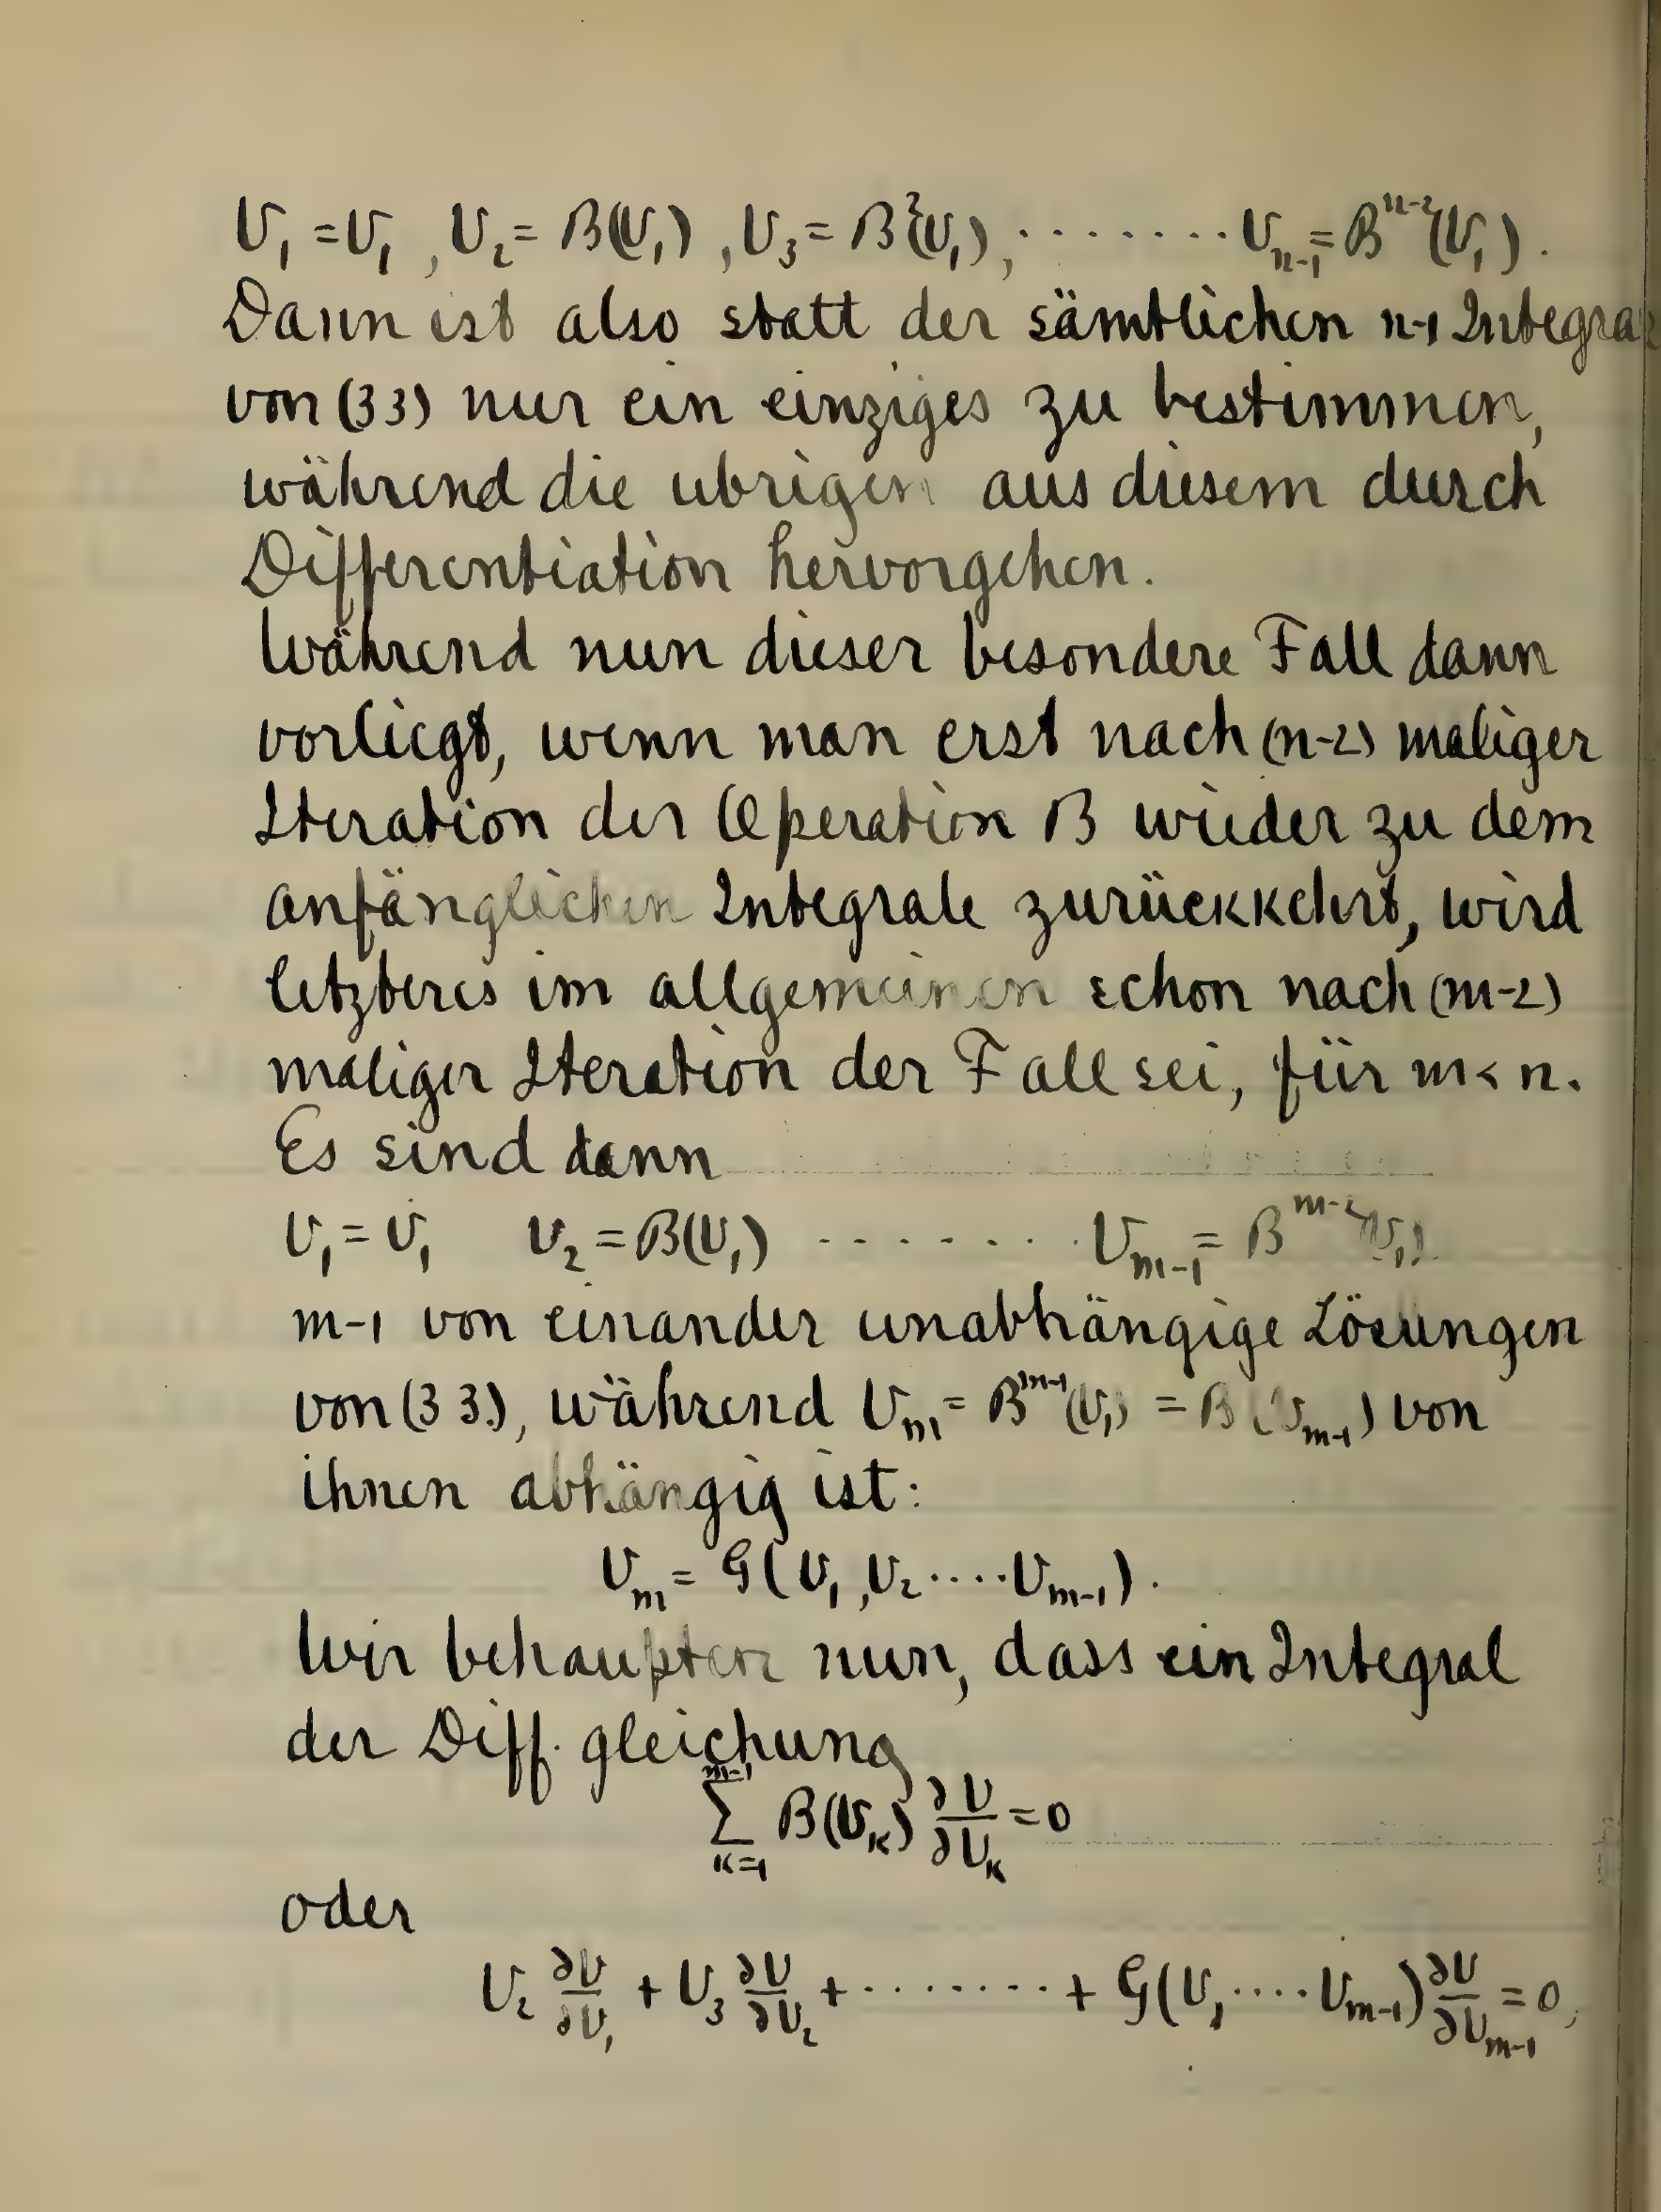 U₁ = U₁, U₂ = B(U₁), U₃ = B²(U₁), ········ Uₙ₋₁ = Bⁿ⁻²(U₁).
Dann ist also statt der sämtlichen n-1 Integrale
von (33) nur ein einziges zu bestimmen,
während die ubrigen aus diesem durch
Differentiation hervorgehen.
Während nun dieser besondere Fall dann
vorliegt, wenn man erst nach (n-2) maliger
Iteration der Operation B wieder zu dem
anfänglichen Integrale zurückkehrt, wird
letzteres im allgemeinen schon nach (m-2)
maliger Iteration der Fall sei, für m < n.
Es sind dann
U₁ = U₁ U₂ = B(U₁) ········ Uₘ₋₁ = Bᵐ⁻²(U₁).
m-1 von einander unabhängige Lösungen
von (33), während Uₘ = Bᵐ⁻¹(U₁) = B(Uₘ₋₁) von
ihnen abhängig ist:
Uₘ = G(U₁, U₂ ···· Uₘ₋₁).
Wir behaupten nun, dass ein Integral
der Diff. gleichung
∑_{κ=1}^{m-1} B(U_κ) ∂U/∂U_κ = 0
oder
U₂ ∂U/∂U₁ + U₃ ∂U/∂U₂ + ········ + G(U₁ ···· Uₘ₋₁) ∂U/∂Uₘ₋₁ = 0,